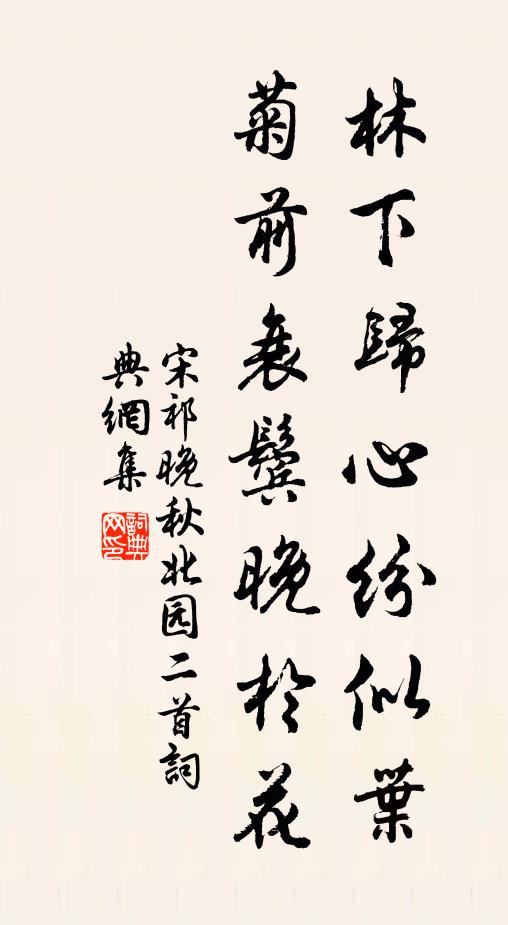 林下歸心紛似葉
菊前衰鬢晚於花
宋祁晚秋北园二首詞
典網集
詞典網印